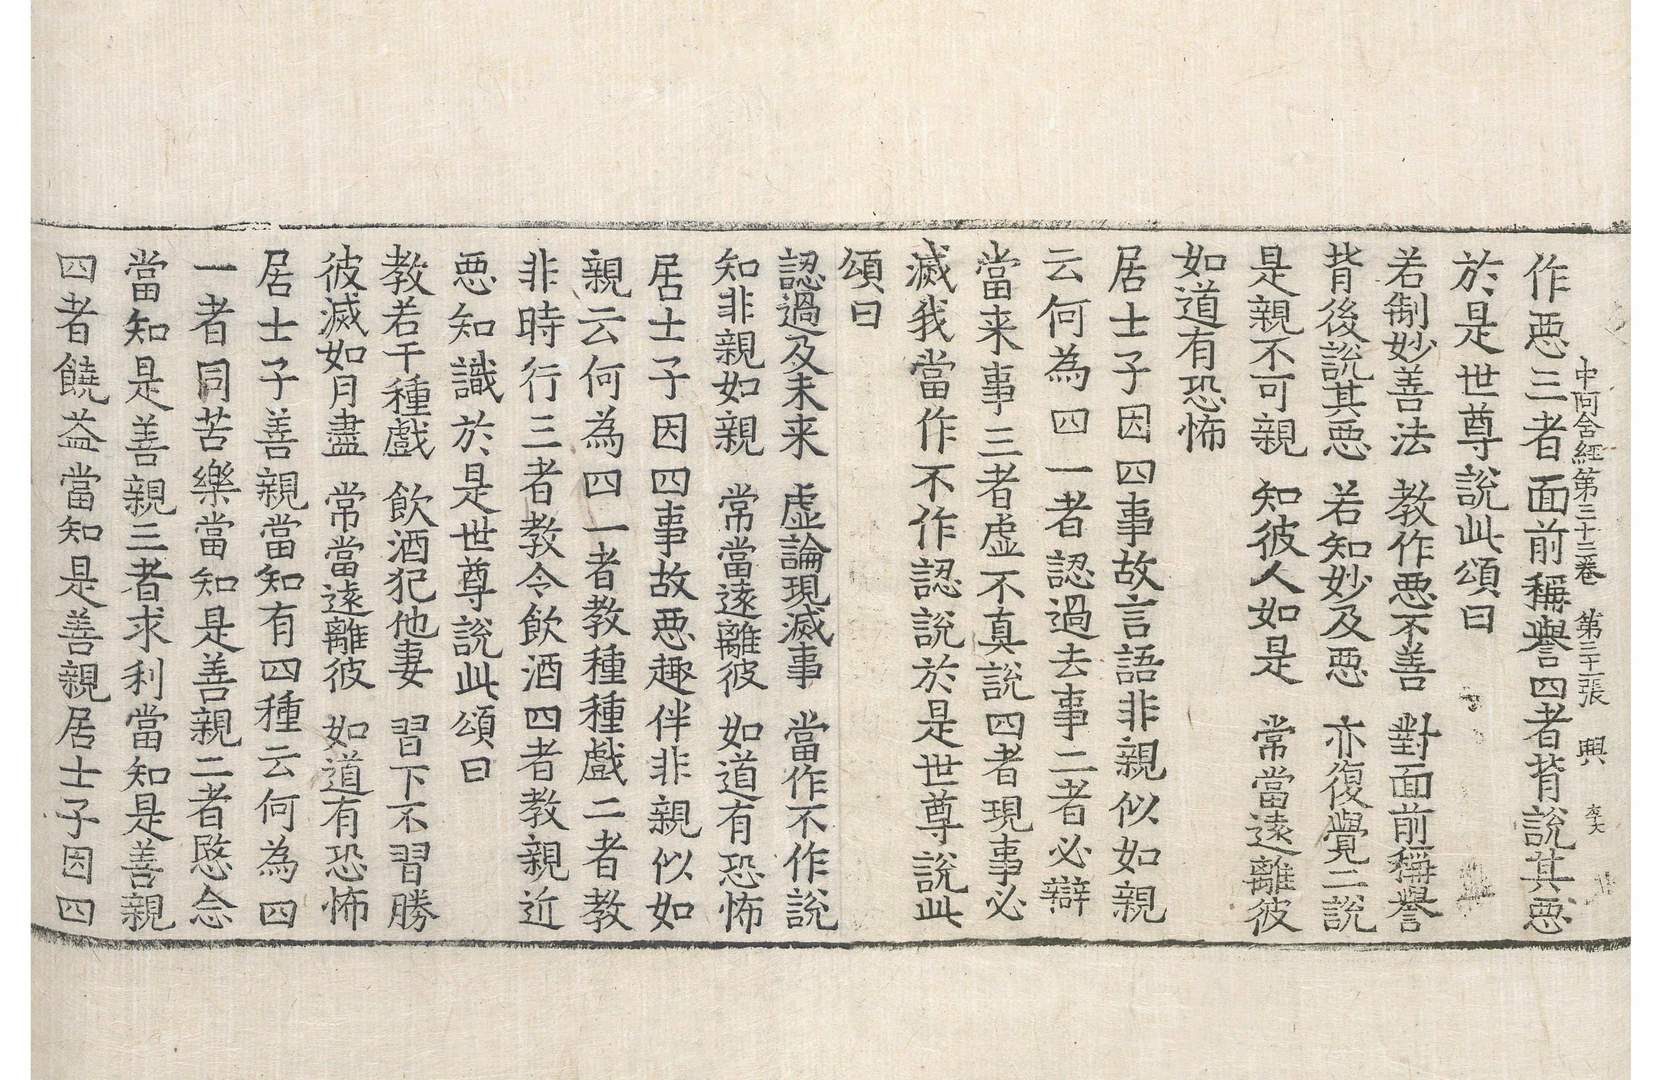 中阿含經第三十三卷 第三十一張 興
作惡三者面前稱譽四者背說其惡
於是世尊說此頌曰
若制妙善法 教作惡不善 對面前稱譽
背後說其惡 若知妙及惡 亦復覺二說
是親不可親 知彼人如是 常當遠離彼
如道有恐怖
居士子因四事故言語非親似如親
云何為四一者認過去事二者必辯
當来事三者虛不真說四者現事必
滅我當作不作認說於是世尊說此
頌曰
認過及未来 虛論現滅事 當作不作說
知非親如親 常當遠離彼 如道有恐怖
居士子因四事故惡趣伴非親似如
親云何為四一者教種種戲二者教
非時行三者教令飲酒四者教親近
惡知識於是世尊說此頌曰
教若干種戲 飲酒犯他妻 習下不習勝
彼滅如月盡 常當遠離彼 如道有恐怖
居士子善親當知有四種云何為四
一者同苦樂當知是善親二者愍念
當知是善親三者求利當知是善親
四者饒益當知是善親居士子因四